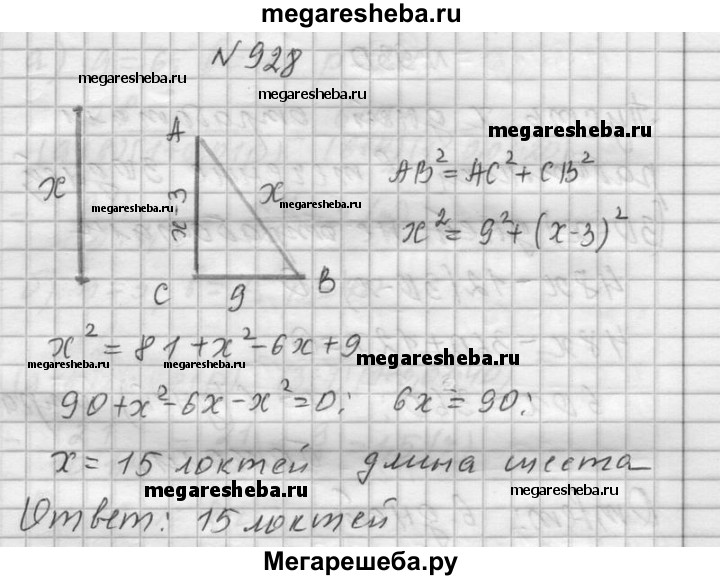 megaresheba.ru
N 928
megaresheba.ru
megaresheba.ru
A
megaresheba.ru
x
x-3
x
AB² = AC² + CB²
megaresheba.ru
megaresheba.ru
x² = 9² + (x-3)²
C
9
B
x² = 81 + x² - 6x + 9
megaresheba.ru
megaresheba.ru
megaresheba.ru
90 + x² - 6x - x² = 0; 6x = 90;
x = 15 локтей длина шеста
megaresheba.ru
megaresheba.ru
Ответ: 15 локтей
Мегарешеба.ру